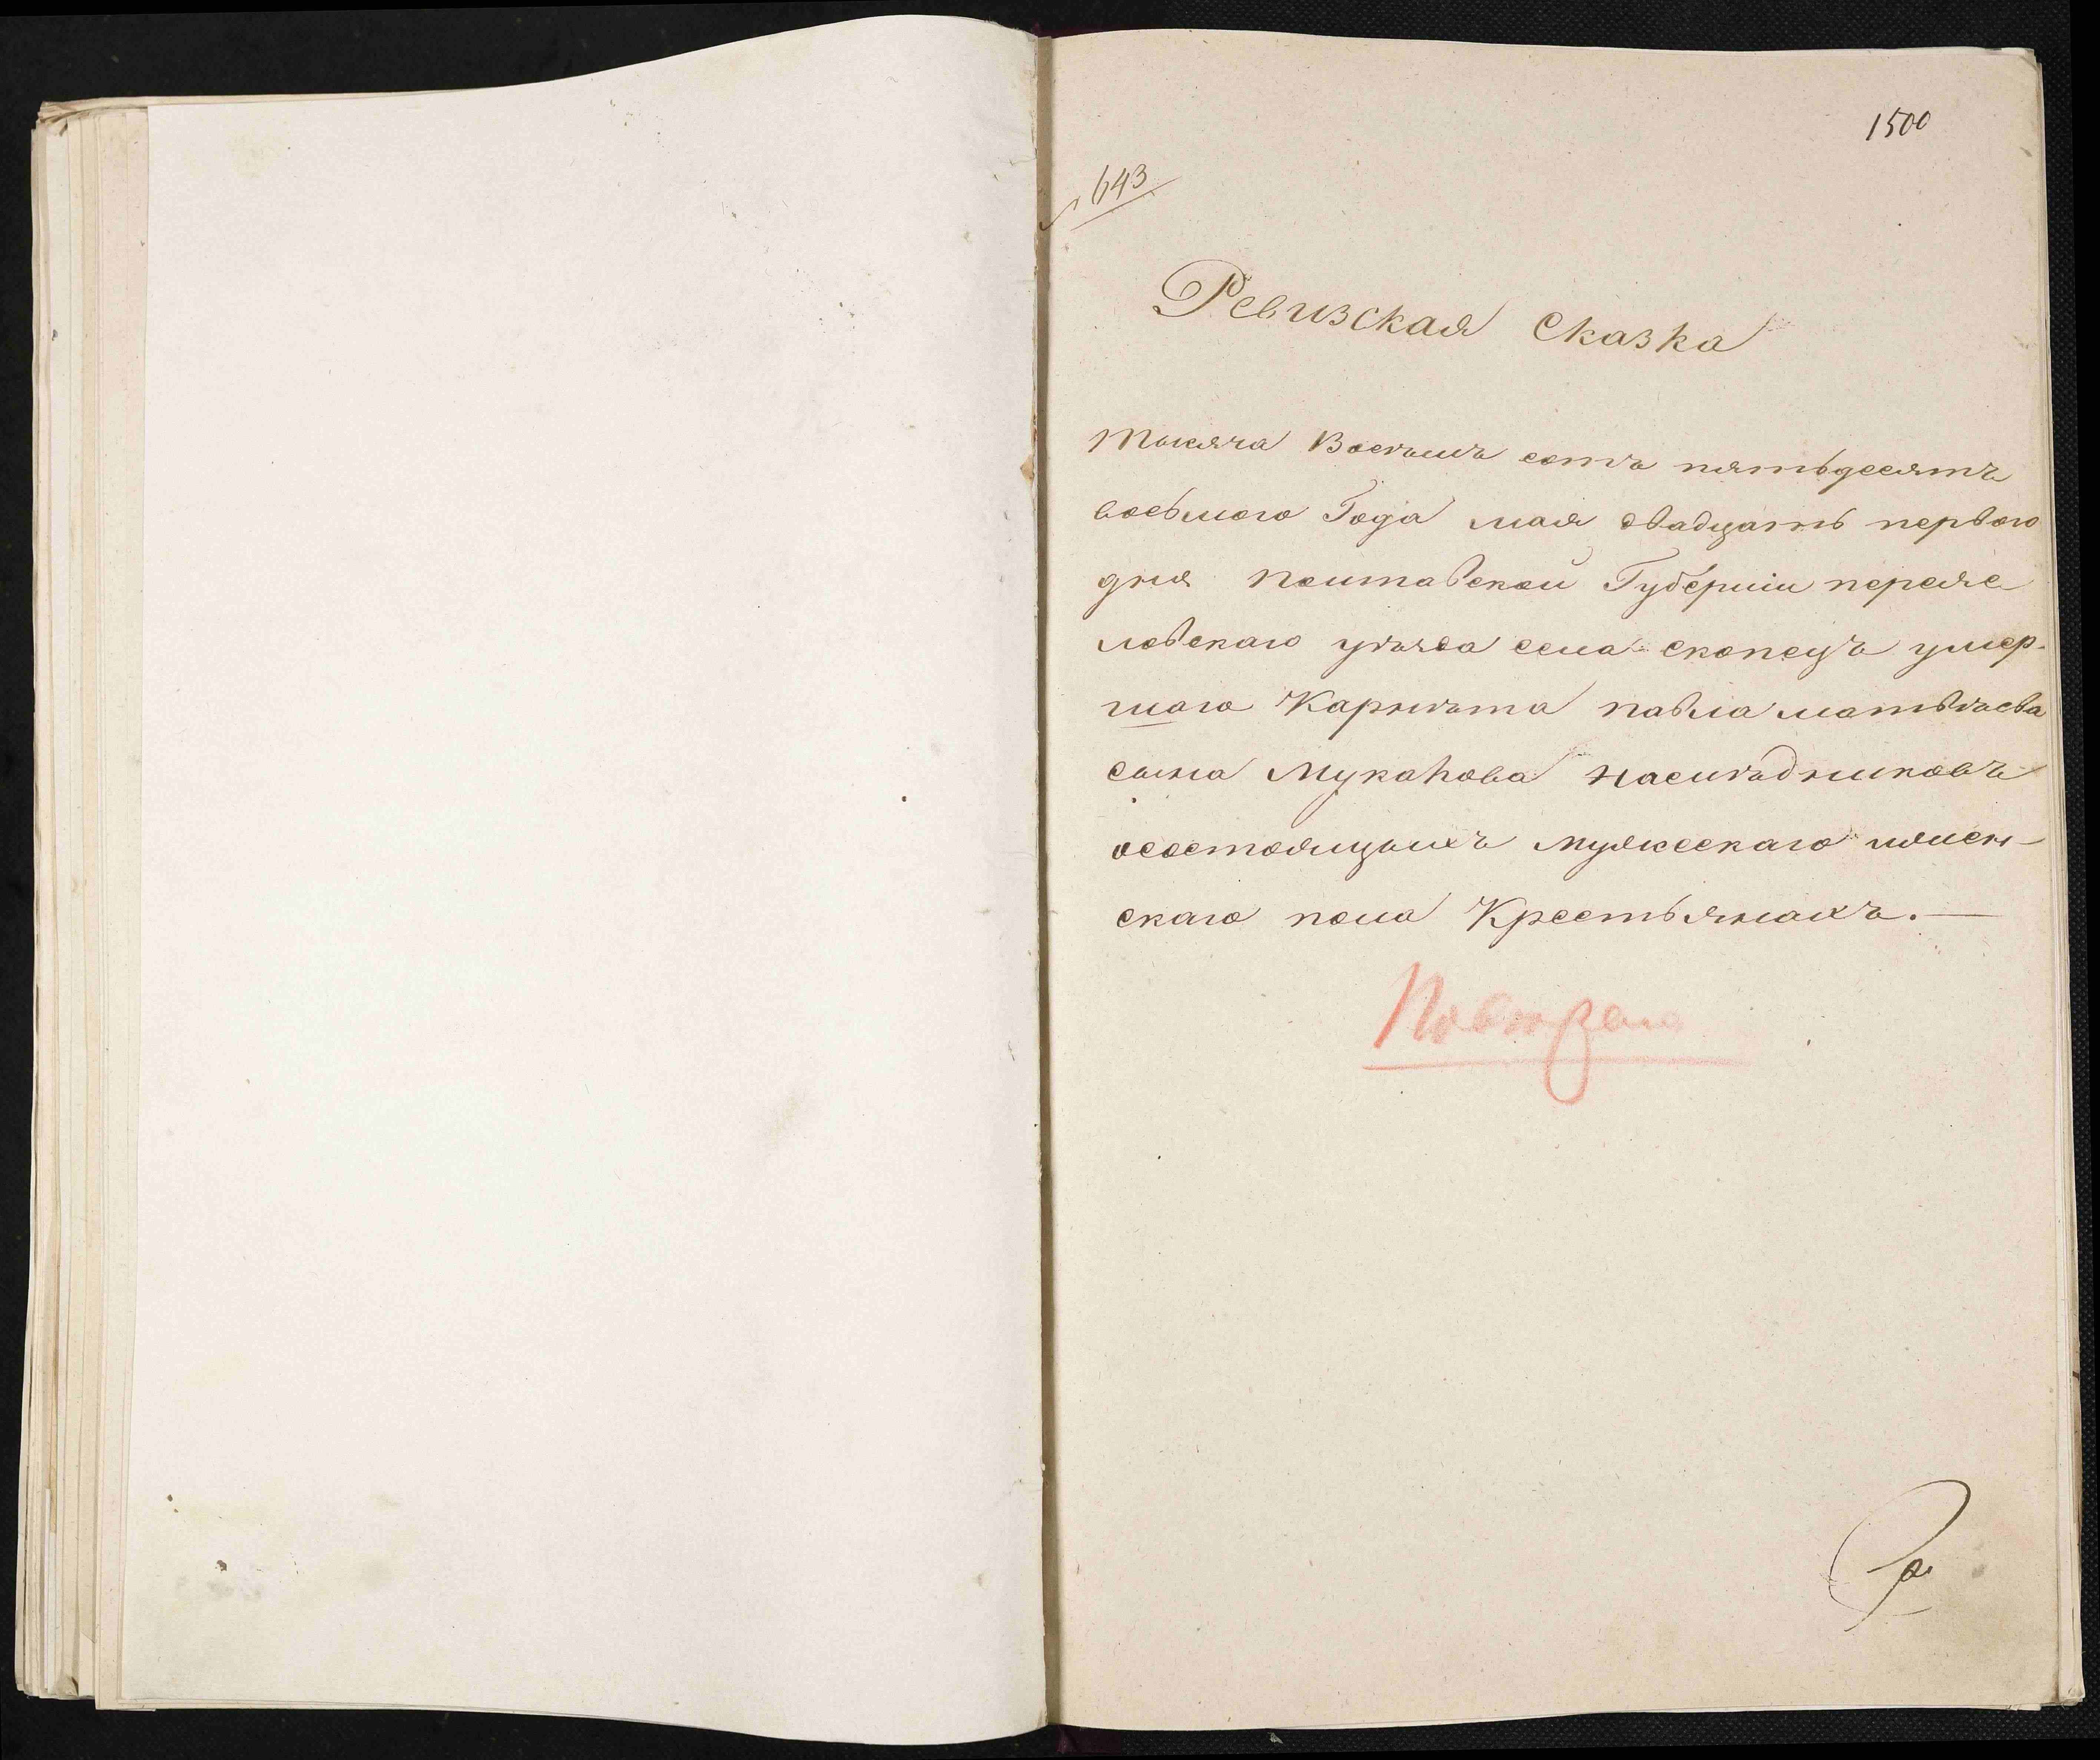 1500
643
Ревизская Сказка
тысяча Восѣмъ сотъ пятьдесятъ
восьмого Года мая двадцать первого
дня Полтавской Губерніи переяс
ловскаго уѣзда села скопецъ умер-
шого Корнѣта павла матвѣева
сына Мукаhова наслѣдниковъ
осостоящыхъ мужескаго иженс-
скаго пола Крестьянахъ. —